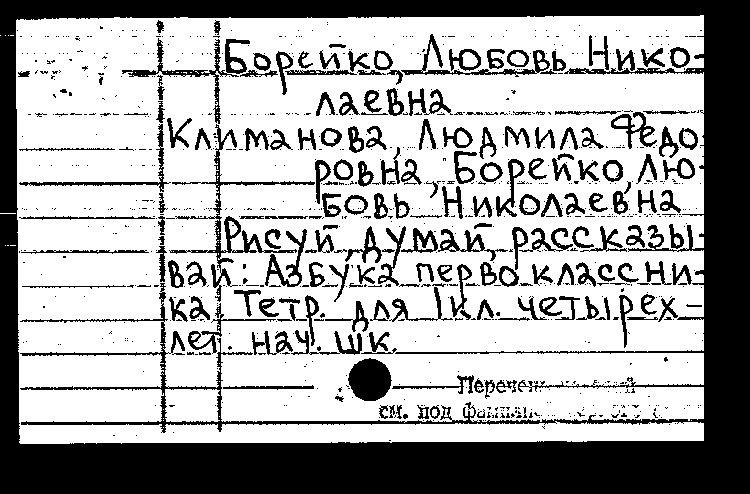 Борейко, Любовь Нико-
лаевна
Климанова, Людмила Федо
ровна, Борейко, Лю-
бовь Николаевна
Рисуй, думай, рассказы-
вай: Азбука перво классни-
ка. Тетр. для 1кл. четырех-
лет. нач. шк.
см. под